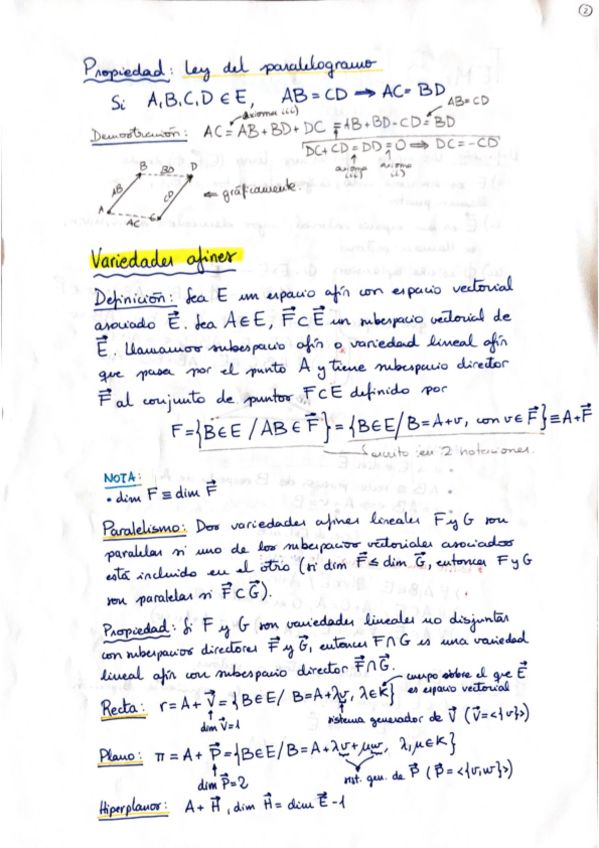 ②
Propiedad: Ley del paralelogramo
Si A,B,C,D ∈ E, AB = CD → AC = BD
AB=CD
axioma iii)
Demostración: AC = AB + BD + DC = AB + BD - CD = BD
DC + CD = DD = O ⟹ DC = -CD
axioma ii) axioma i)
B BD D
AB CD ← gráficamente.
A AC C
Variedades afines
Definición: Sea E un espacio afín con espacio vectorial
asociado E⃗. Sea A ∈ E, F⃗ ⊂ E⃗ un subespacio vectorial de
E⃗. Llamamos subespacio afín o variedad lineal afín
que pasa por el punto A y tiene subespacio director
F⃗ al conjunto de puntos F ⊂ E definido por
F = {B ∈ E / AB ∈ F⃗} = {B ∈ E / B = A + v, con v ∈ F⃗} ≡ A + F⃗
Escrito en 2 notaciones.
NOTA:
• dim F ≡ dim F⃗
Paralelismo: Dos variedades afines lineales F y G son
paralelas si uno de los subespacios vectoriales asociados
está incluido en el otro (si dim F⃗ ≤ dim G⃗, entonces F y G
son paralelas si F⃗ ⊂ G⃗).
Propiedad: Si F y G son variedades lineales no disjuntas
con subespacios directores F⃗ y G⃗, entonces F ∩ G es una variedad
lineal afín con subespacio director F⃗ ∩ G⃗.
cuerpo sobre el que E⃗
Recta: r = A + V⃗ = {B ∈ E / B = A + λv, λ ∈ K} es espacio vectorial
dim V⃗ = 1 sistema generador de V⃗ (V⃗ = <{v}>)
Plano: π = A + P⃗ = {B ∈ E / B = A + λv + μw, λ, μ ∈ K}
dim P⃗ = 2 sist. gen. de P⃗ (P⃗ = <{v,w}>)
Hiperplanos: A + H⃗, dim H⃗ = dim E⃗ - 1